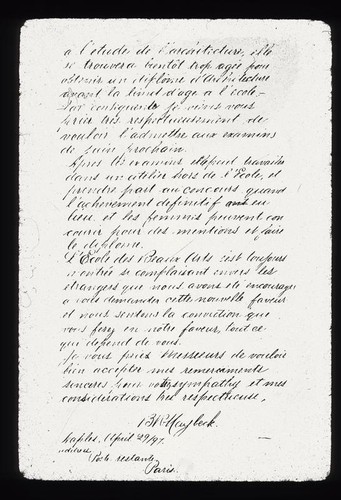 à l'etude de l'architecture, elle
se trouvera bientôt trop agée pour
obtenir un diplome d'Architecture
avant la limit d'age a l'école -
Par consequent je viens vous
prier très respectueusement de
vouloir l'admettre aux examins
de Juin prochain.
Apres les examins elle peut travailler
dans un atelier hors de l'École, et
prendre part au concours, quand
l'achivement definitif aura eu
lieu et les femmes peuvent con
courir pour des mentions et faire
le diplome.
L'École des Beaux Arts s'est toujours
montrée si complaisant envers les
etrangers que nous avons ete encouragés
a vous demander cette nouvelle faveur
et nous sentons la conviction que
vous ferez en notre faveur, tout ce
qui depend de vous.
Je vous prie Messieurs de vouloir
bien accepter mes remerciments
sinceres pour votre sympathy et mes
considerations tres respectueuse,
B R Maybeck.
Naples, April 29/97.
address
Poste restante
Paris.